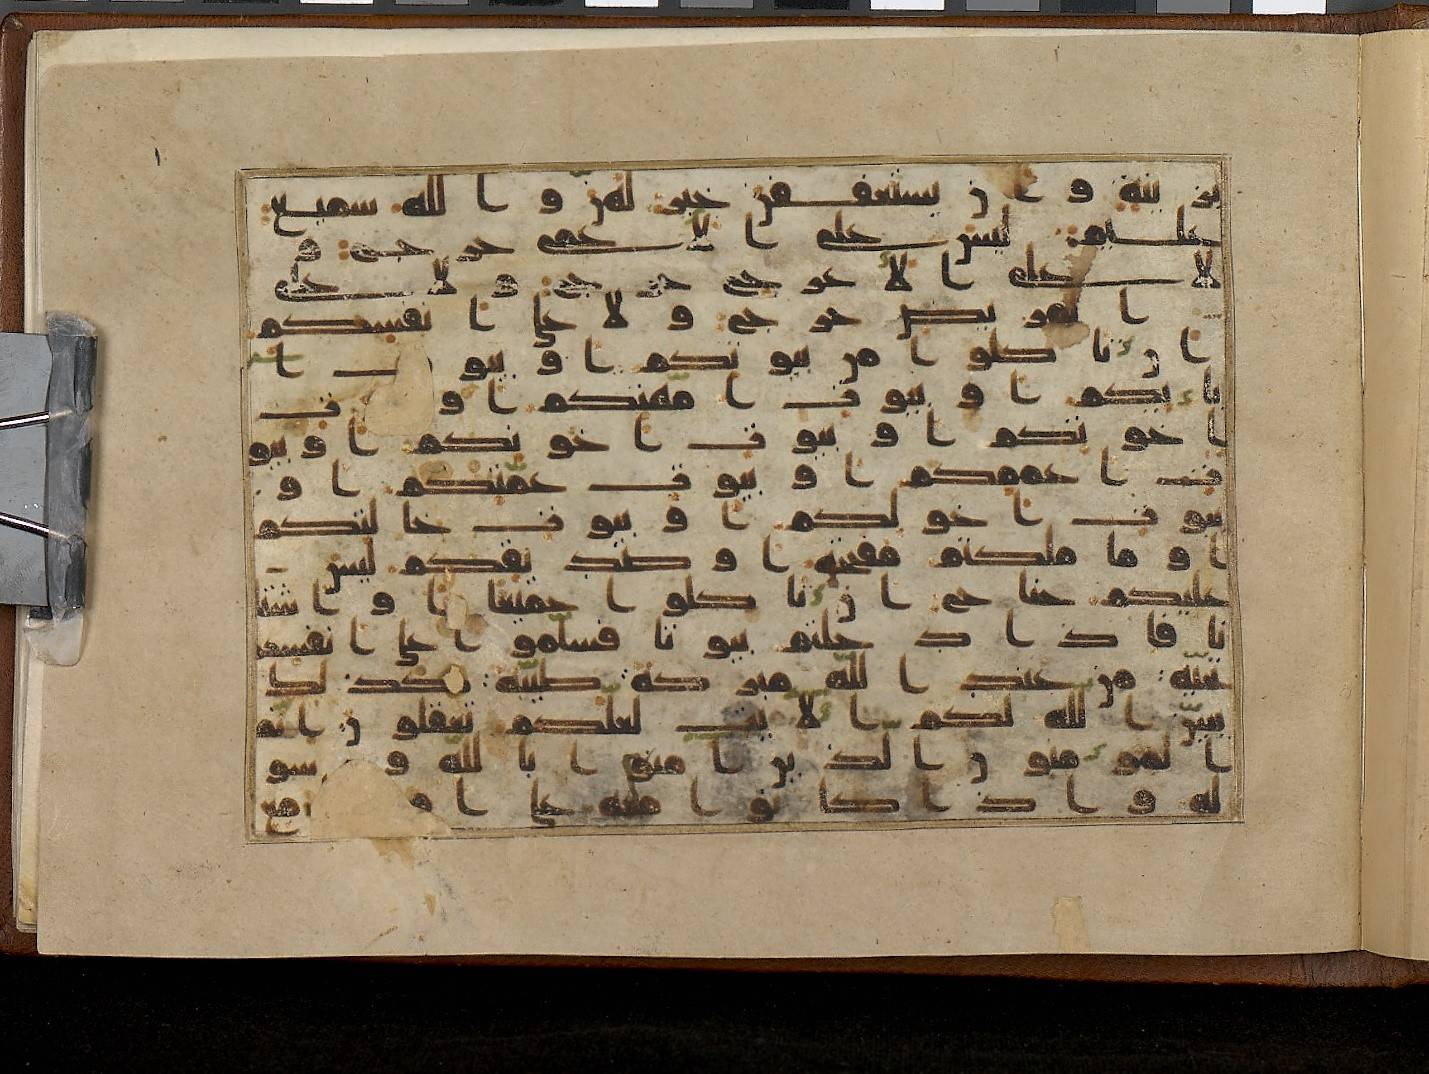 بزينة و ا ن يستعففن خير لهن و ا لله سميع
عليم ليس على ا لا عمى حر ج و
لا على ا لا عر ج حر ج و لا على
ا لمر يض حر ج و لا على ا نفسكم
ا ن تا كلو ا من بيو تكم ا و بيو ت ا
با ئكم ا و بيو ت ا مهتكم ا و بيو ت
ا خو نكم ا و بيو ت ا خو تكم ا و بيو
ت ا عممكم ا و بيو ت عمتكم ا و
بيو ت ا خو لكم ا و بيو ت خا لتكم
ا و ما ملكتم مفتحه ا و صد يقكم ليس
عليكم جنا ح ا ن تا كلو ا جميعا ا و ا شتا
تا فا ذ ا د خلتم بيو تا فسلمو ا على ا نفسكم
تحية من عند ا لله مبر كة طيبة كذ لك
يبين ا لله لكم ا لا يت لعلكم تعقلو ن ا نما
ا لمو منو ن ا لذ ين ا منو ا با لله و ر سو
له و ا ذ ا كا نو ا معه على ا مر